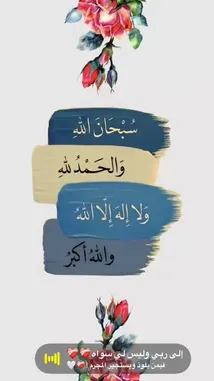 سُبْحَانَ اللهِ
وَالحَمْدُ للهِ
وَلَا إِلهَ إِلَّا اللهُ
وَاللهُ أَكبَرُ
إلى ربي وليس لي سواه
فبمن يلوذ ويستجير المجرم